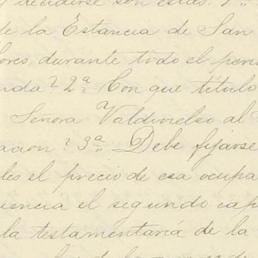 y decidirse son estas. 1ª
de la Estancia de San
ores, durante todo el peri
nda? 2ª Con que título
Señora Valdivielso al
acion? 3ª Debe fijarse
les el precio de esa ocupa
uencia el segundo cap
la testamentaría de la